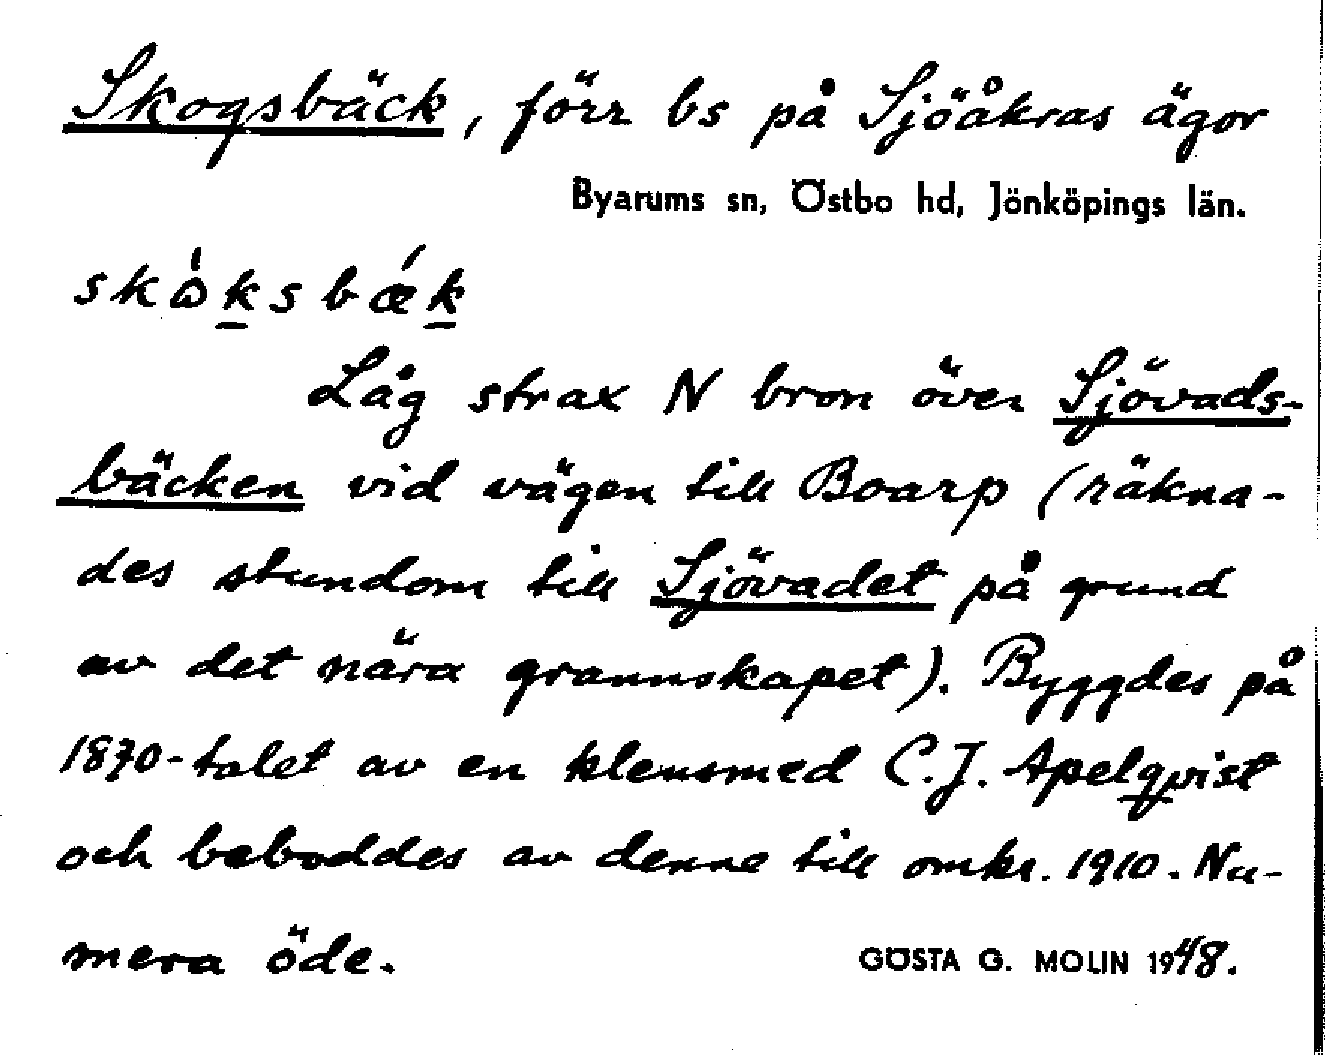 Skogsbäck, förr bs på Sjöåkras ägor
Byarums sn, Östbo hd, Jönköpings län.
skὼksbǽk
Låg strax N bron över Sjövads-
bäcken vid vägen till Boarp (räkna-
des stundom till Sjövadet på grund
av det nära grannskapet). Byggdes på
1870-talet av en klensmed C.J. Apelqvist
och beboddes av denne till omkr. 1910. Nu-
mera öde.
GÖSTA G. MOLIN 1948.